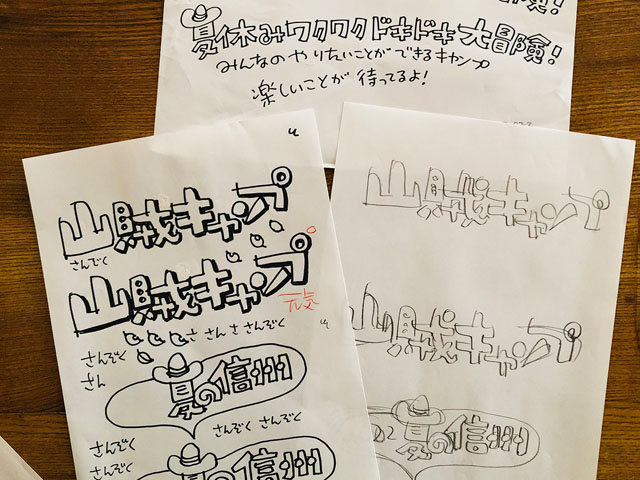 険!
夏休みワクワクドキドキ大冒険!
みんなのやりたいことができるキャンプ
楽しいことが待ってるよ!
山賊キャンプ
さんぞく
山賊キャンプ
元気
さ さん さ さんぞく
さんぞく
さん
夏の信州
さんぞく さんぞく
さんぞく
さんぞく
夏の信州
山賊キャンプ
山賊キャンプ
夏の信州